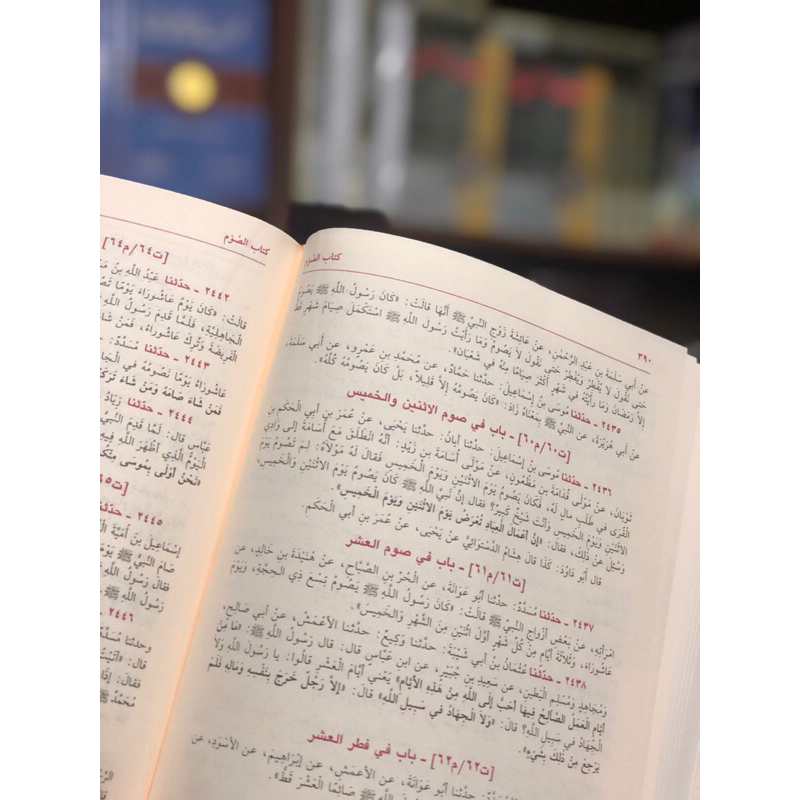 كتاب الصَّوْم
٣٩٠
عَنْ أَبِي سَلَمَةَ بْنِ عَبْدِ الرَّحْمٰنِ، عَنْ عَائِشَةَ زَوْجِ النَّبِيِّ ﷺ أَنَّهَا قَالَتْ: «كَانَ رَسُولُ اللَّهِ ﷺ يَصُومُ
حَتَّى نَقُولَ لَا يُفْطِرُ وَيُفْطِرُ حَتَّى نَقُولَ لَا يَصُومُ وَمَا رَأَيْتُ رَسُولَ اللَّهِ ﷺ اسْتَكْمَلَ صِيَامَ شَهْرٍ قَطُّ
إِلَّا رَمَضَانَ وَمَا رَأَيْتُهُ فِي شَهْرٍ أَكْثَرَ صِيَامًا مِنْهُ فِي شَعْبَانَ».
٢٤٣٥ - حدّثنا مُوسَى بْنُ إِسْمَاعِيلَ: حَدَّثَنَا حَمَّادٌ، عَنْ مُحَمَّدِ بْنِ عَمْرٍو، عَنْ أَبِي سَلَمَةَ،
عَنْ أَبِي هُرَيْرَةَ، عَنِ النَّبِيِّ ﷺ بِمَعْنَاهُ زَادَ: «كَانَ يَصُومُهُ إِلَّا قَلِيلًا، بَلْ كَانَ يَصُومُهُ كُلَّهُ».
[ت٦٠/م٦٠] - باب في صوم الاثنين والخميس
٢٤٣٦ - حدّثنا مُوسَى بْنُ إِسْمَاعِيلَ: حَدَّثَنَا أَبَانُ: حَدَّثَنَا يَحْيَى، عَنْ عُمَرَ بْنِ أَبِي الْحَكَمِ بْنِ
ثَوْبَانَ، عَنْ مَوْلَى قُدَامَةَ بْنِ مَظْعُونٍ، عَنْ مَوْلَى أُسَامَةَ بْنِ زَيْدٍ: أَنَّهُ انْطَلَقَ مَعَ أُسَامَةَ إِلَى وَادِي
الْقُرَى فِي طَلَبِ مَالٍ لَهُ، فَكَانَ يَصُومُ يَوْمَ الاثْنَيْنِ وَيَوْمَ الْخَمِيسِ فَقَالَ لَهُ مَوْلَاهُ: لِمَ تَصُومُ يَوْمَ
الاثْنَيْنِ وَيَوْمَ الْخَمِيسِ وَأَنْتَ شَيْخٌ كَبِيرٌ؟ فَقَالَ إِنَّ نَبِيَّ اللَّهِ ﷺ كَانَ يَصُومُ يَوْمَ الاثْنَيْنِ وَيَوْمَ الْخَمِيسِ،
وَسُئِلَ عَنْ ذَلِكَ، فَقَالَ: «إِنَّ أَعْمَالَ الْعِبَادِ تُعْرَضُ يَوْمَ الاثْنَيْنِ وَيَوْمَ الْخَمِيسِ».
قال أَبُو دَاوُدَ: كَذَا قَالَ هِشَامٌ الدَّسْتَوَائِيُّ عَنْ يَحْيَى، عَنْ عُمَرَ بْنِ أَبِي الْحَكَمِ.
[ت٦١/م٦١] - باب في صوم العشر
٢٤٣٧ - حدّثنا مُسَدَّدٌ: حَدَّثَنَا أَبُو عَوَانَةَ، عن الْحُرِّ بْنِ الصَّيَّاحِ، عَنْ هُنَيْدَةَ بْنِ خَالِدٍ، عن
امْرَأَتِهِ، عن بَعْضِ أَزْوَاجِ النَّبِيِّ ﷺ قَالَتْ: «كَانَ رَسُولُ اللَّهِ ﷺ يَصُومُ تِسْعَ ذِي الْحِجَّةِ، وَيَوْمَ
عَاشُورَاءَ، وَثَلَاثَةَ أَيَّامٍ مِنْ كُلِّ شَهْرٍ أَوَّلَ اثْنَيْنِ مِنَ الشَّهْرِ وَالْخَمِيسَ».
٢٤٣٨ - حدّثنا عُثْمَانُ بْنُ أَبِي شَيْبَةَ: حَدَّثَنَا وَكِيعٌ: حَدَّثَنَا الأَعْمَشُ، عن أَبِي صَالِحٍ،
وَمُجَاهِدٍ وَمُسْلِمٍ الْبَطِينِ، عن سَعِيدِ بْنِ جُبَيْرٍ، عن ابنِ عَبَّاسٍ قال: قال رَسُولُ اللَّهِ ﷺ: «مَا مِنْ
أَيَّامٍ الْعَمَلُ الصَّالِحُ فِيهَا أَحَبُّ إِلَى اللَّهِ مِنْ هَذِهِ الأَيَّامِ» يَعْنِي أَيَّامَ الْعَشْرِ قالُوا: يا رَسُولَ اللَّهِ وَلَا
الْجِهَادُ فِي سَبِيلِ اللَّهِ؟ قالَ: «وَلَا الْجِهَادُ فِي سَبِيلِ اللَّهِ» قال: «إِلَّا رَجُلٌ خَرَجَ بِنَفْسِهِ وَمَالِهِ فَلَمْ
يَرْجِعْ مِنْ ذَلِكَ بِشَيْءٍ».
[ت٦٢/م٦٢] - باب في فطر العشر
حَدَّثَنَا أَبُو عَوَانَةَ، عن الأَعْمَشِ، عن إِبْرَاهِيمَ، عن الأَسْوَدِ، عن
اللَّهِ ﷺ صَائِمًا الْعَشْرَ قَطُّ».
كتاب الصَّوْم
[ت٦٤/م٦٤]
٢٤٤٢ - حدّثنا عَبْدُ اللَّهِ بْنُ
قَالَتْ: «كَانَ يَوْمُ عَاشُورَاءَ يَوْمًا
الْجَاهِلِيَّةِ، فَلَمَّا قَدِمَ رَسُولُ
الْفَرِيضَةَ وَتُرِكَ عَاشُورَاءُ، فَمَنْ
٢٤٤٣ - حدّثنا مُسَدَّدٌ:
عَاشُورَاءُ يَوْمًا نَصُومُهُ فِي
فَمَنْ شَاءَ صَامَهُ وَمَنْ شَاءَ
٢٤٤٤ - حدّثنا زِيَادُ
عَبَّاسٍ قال: لَمَّا قَدِمَ النَّبِيُّ
الْيَوْمُ الَّذِي أَظْهَرَ اللَّهُ فِيهِ
«نَحْنُ أَوْلَى بِمُوسَى
٢٤٤٥ - حدّثنا
إِسْمَاعِيلَ بْنَ أُمَيَّةَ
صَامَ النَّبِيُّ ﷺ يَوْمَ
فقال رَسُولُ اللَّهِ
رَسُولُ اللَّهِ
٢٤٤٦
وحدثنا مُسَدَّدٌ
قال:
فَقَالَ:
مُحَمَّدٌ